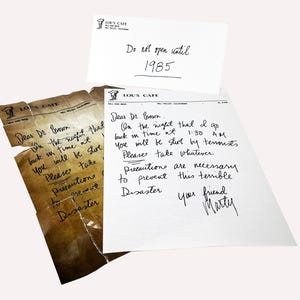 LOU'S CAFE
Do not open until
1985
LOU'S CAFE
Dear Dr. Brown
On the night that
back in time
you will be shot by
Please take
precautions
to prevent
Disaster
LOU'S CAFE
Dear Dr. Brown.
On the night that I go
back in time at 1:30 AM
you will be shot by terrorists
Please take whatever
precautions are necessary
to prevent this terrible
Disaster
your friend
Marty